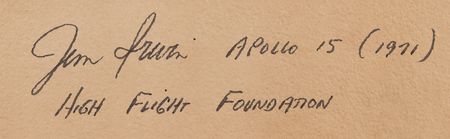 Jim Irwin Apollo 15 (1971)
High Flight Foundation